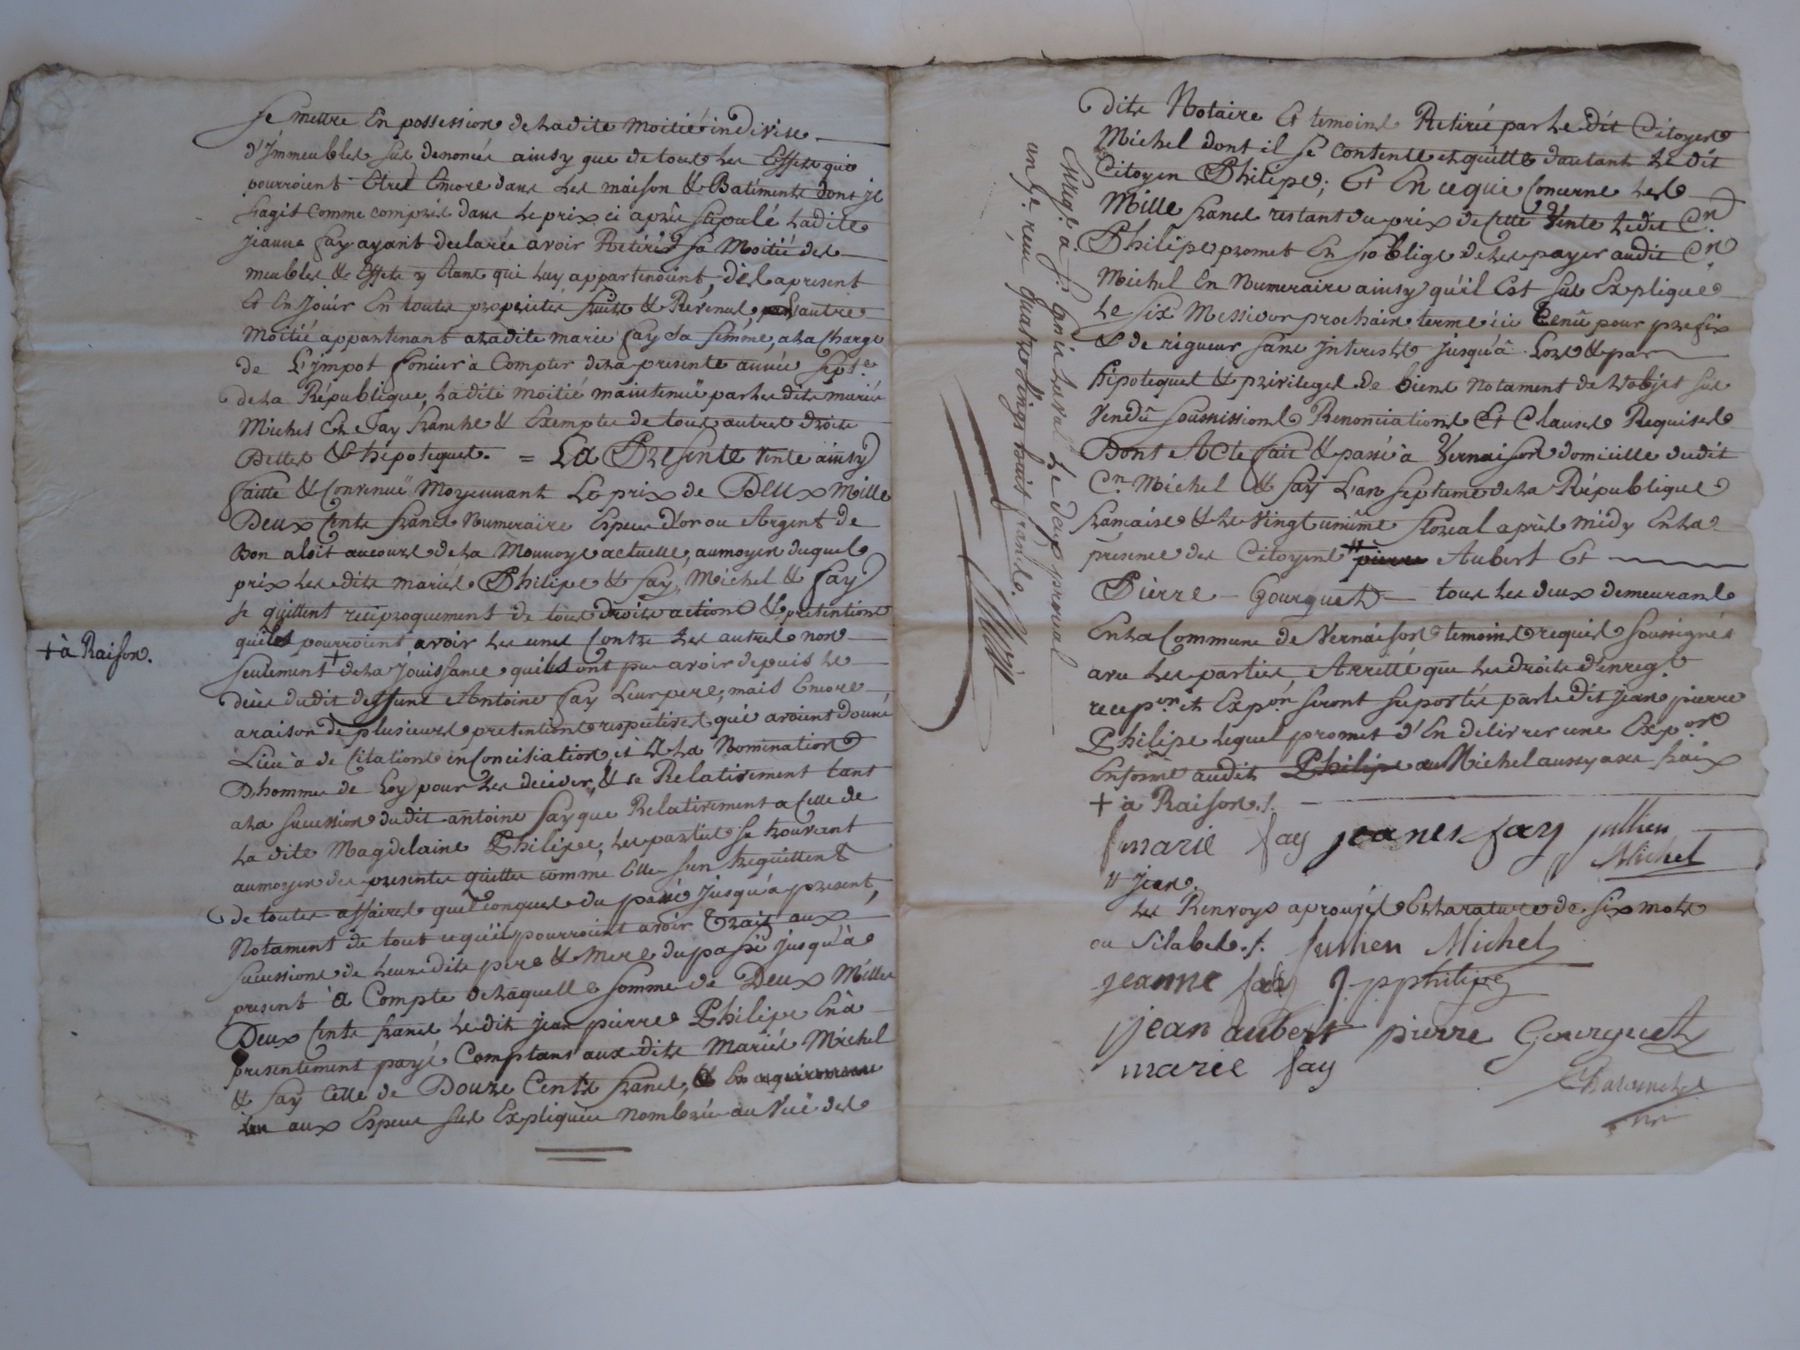 se mettre en possession de ladite moitié indivise
d'immeubles sus denoncés ainsy que de tous les Effets qui
pourroient Etres Encore dans les maison & Batiments dont il
sagit comme compris dans le prix ci après stipulé ladite
jeanne fay ayant declarée avoir Retirés sa Moitié des
meubles & Effets y Etans qui luy appartenoint, dès apresent
Et En Jouir En toutes proprietes fruits & Revenus, l'autre
Moitié appartenant aladite marie fay sa femme, ala charge
de L'impot foncier à Compter dela presente année sept.e
dela République, ladite moitié maintenuë par lesdits mariés
Michel Et fay franche & Exempte de tous autres droits
Dettes & hipoteques. = La Presente vente ainsy
faitte & Convenuë Moyennant Le prix de Deux Mille
Deux Cents francs Numeraire Espece d'or ou Argent de
Bon aloit aucours dela Monnoye actuelle, aumoyen duquel
prix lesdits mariés Philipe & fay, Michel & fay
se quittent reciproquement de tous droits actions & pretentions
quils pourroient avoir les uns Contre les autres non
+ à Raison.
seulement + dela jouissance quils ont pu avoir depuis le
deces dudit deffunt Antoine fay leur pere, mais Encore
araison de plusieurs pretentions respectives qui avoient donné
Lieu à de Citations en Conciliation, et A la Nomination
D'hommes de Loy pour les decider, & ce Relativement tant
ala succession dudit antoine fay que Relativement a Celle de
La dite Magdelaine Philipe, les parties se trouvant
aumoyen des presentes quittes comme Elles sen trequittent
de toutes affaires quelconques du passé jusqu'a present,
Notament de tout cequ'ils pourroient avoir Trait aux
successions de leursdits pere & mere du passé jusqu'à
present à Compte de laquelle somme de Deux Milles
Deux Cents francs ledit jean pierre Philipe En à
presentement payé Comptant aux dits Mariés Michel
& fay Celle de Douze Cents francs,
aux Especes sus Expliquées Nombrée au Vuë des
dits Notaire Et temoins Retirée par le dit Citoyen
Michel dont il se contente et quitte dautant le dit
Citoyen Philipe; Et En cequi Concerne les
Mille francs restant du prix de cette Vente ledit C.n
Philipe promet En s'oblige de les payer audit C.n
Michel En Numeraire ainsy qu'il Est sus Expliqué
Le six Messidor prochain terme ici tenû pour prefix
& de rigueur sans Interest jusqu'à Lors & par
hipoteques & privileges de biens Notament de l'objet sus
vendû soûmissions Renonciations Et Clauses Requises
Dont Acte fait & passé à Vernaison domicille dudit
C.n Michel & fay L'an septieme dela République
francaise & le Vingt unième floreal après midy Enla
présence des Citoyens " pierre Aubert Et
Pierre Gourguet tous les deux demeurans
Enla Commune de Vernaison temoins requis soussignés
avec les parties Arretté que les droits d'enreg.t
recep.on et Exp.on seront suportés par le dit jean pierre
Philipe lequel promet d'En delivrer une Exp.on
Enforme audit Philipe au Michel aussy ases fraix
+ à Raison./.
marie fay jeanes fay jullien
Michel
" Jean.
Les Renvoys aprouvés Et la rature de six mots
ou silabes./. jullien Michel
jeanne fay J. p philipe
jean aubert pierre Gourguet
marie fay
Enreg.é à S.t Genis Laval le 
an 7.e reçu quatre vingt huit francs.